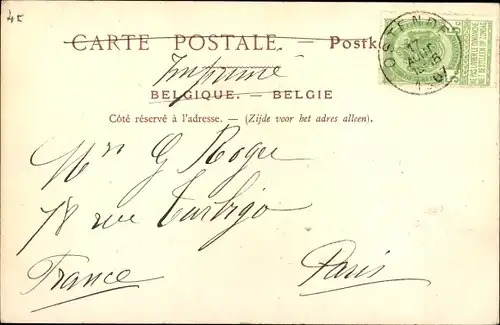 45
CARTE POSTALE. — Postk
Imprimé
BELGIQUE. — BELGIE
Côté réservé à l'adresse. — (Zijde voor het adres alleen).
OSTENDE
17
AOUT
Mr G Roger
78 rue Turbigo
Paris
France